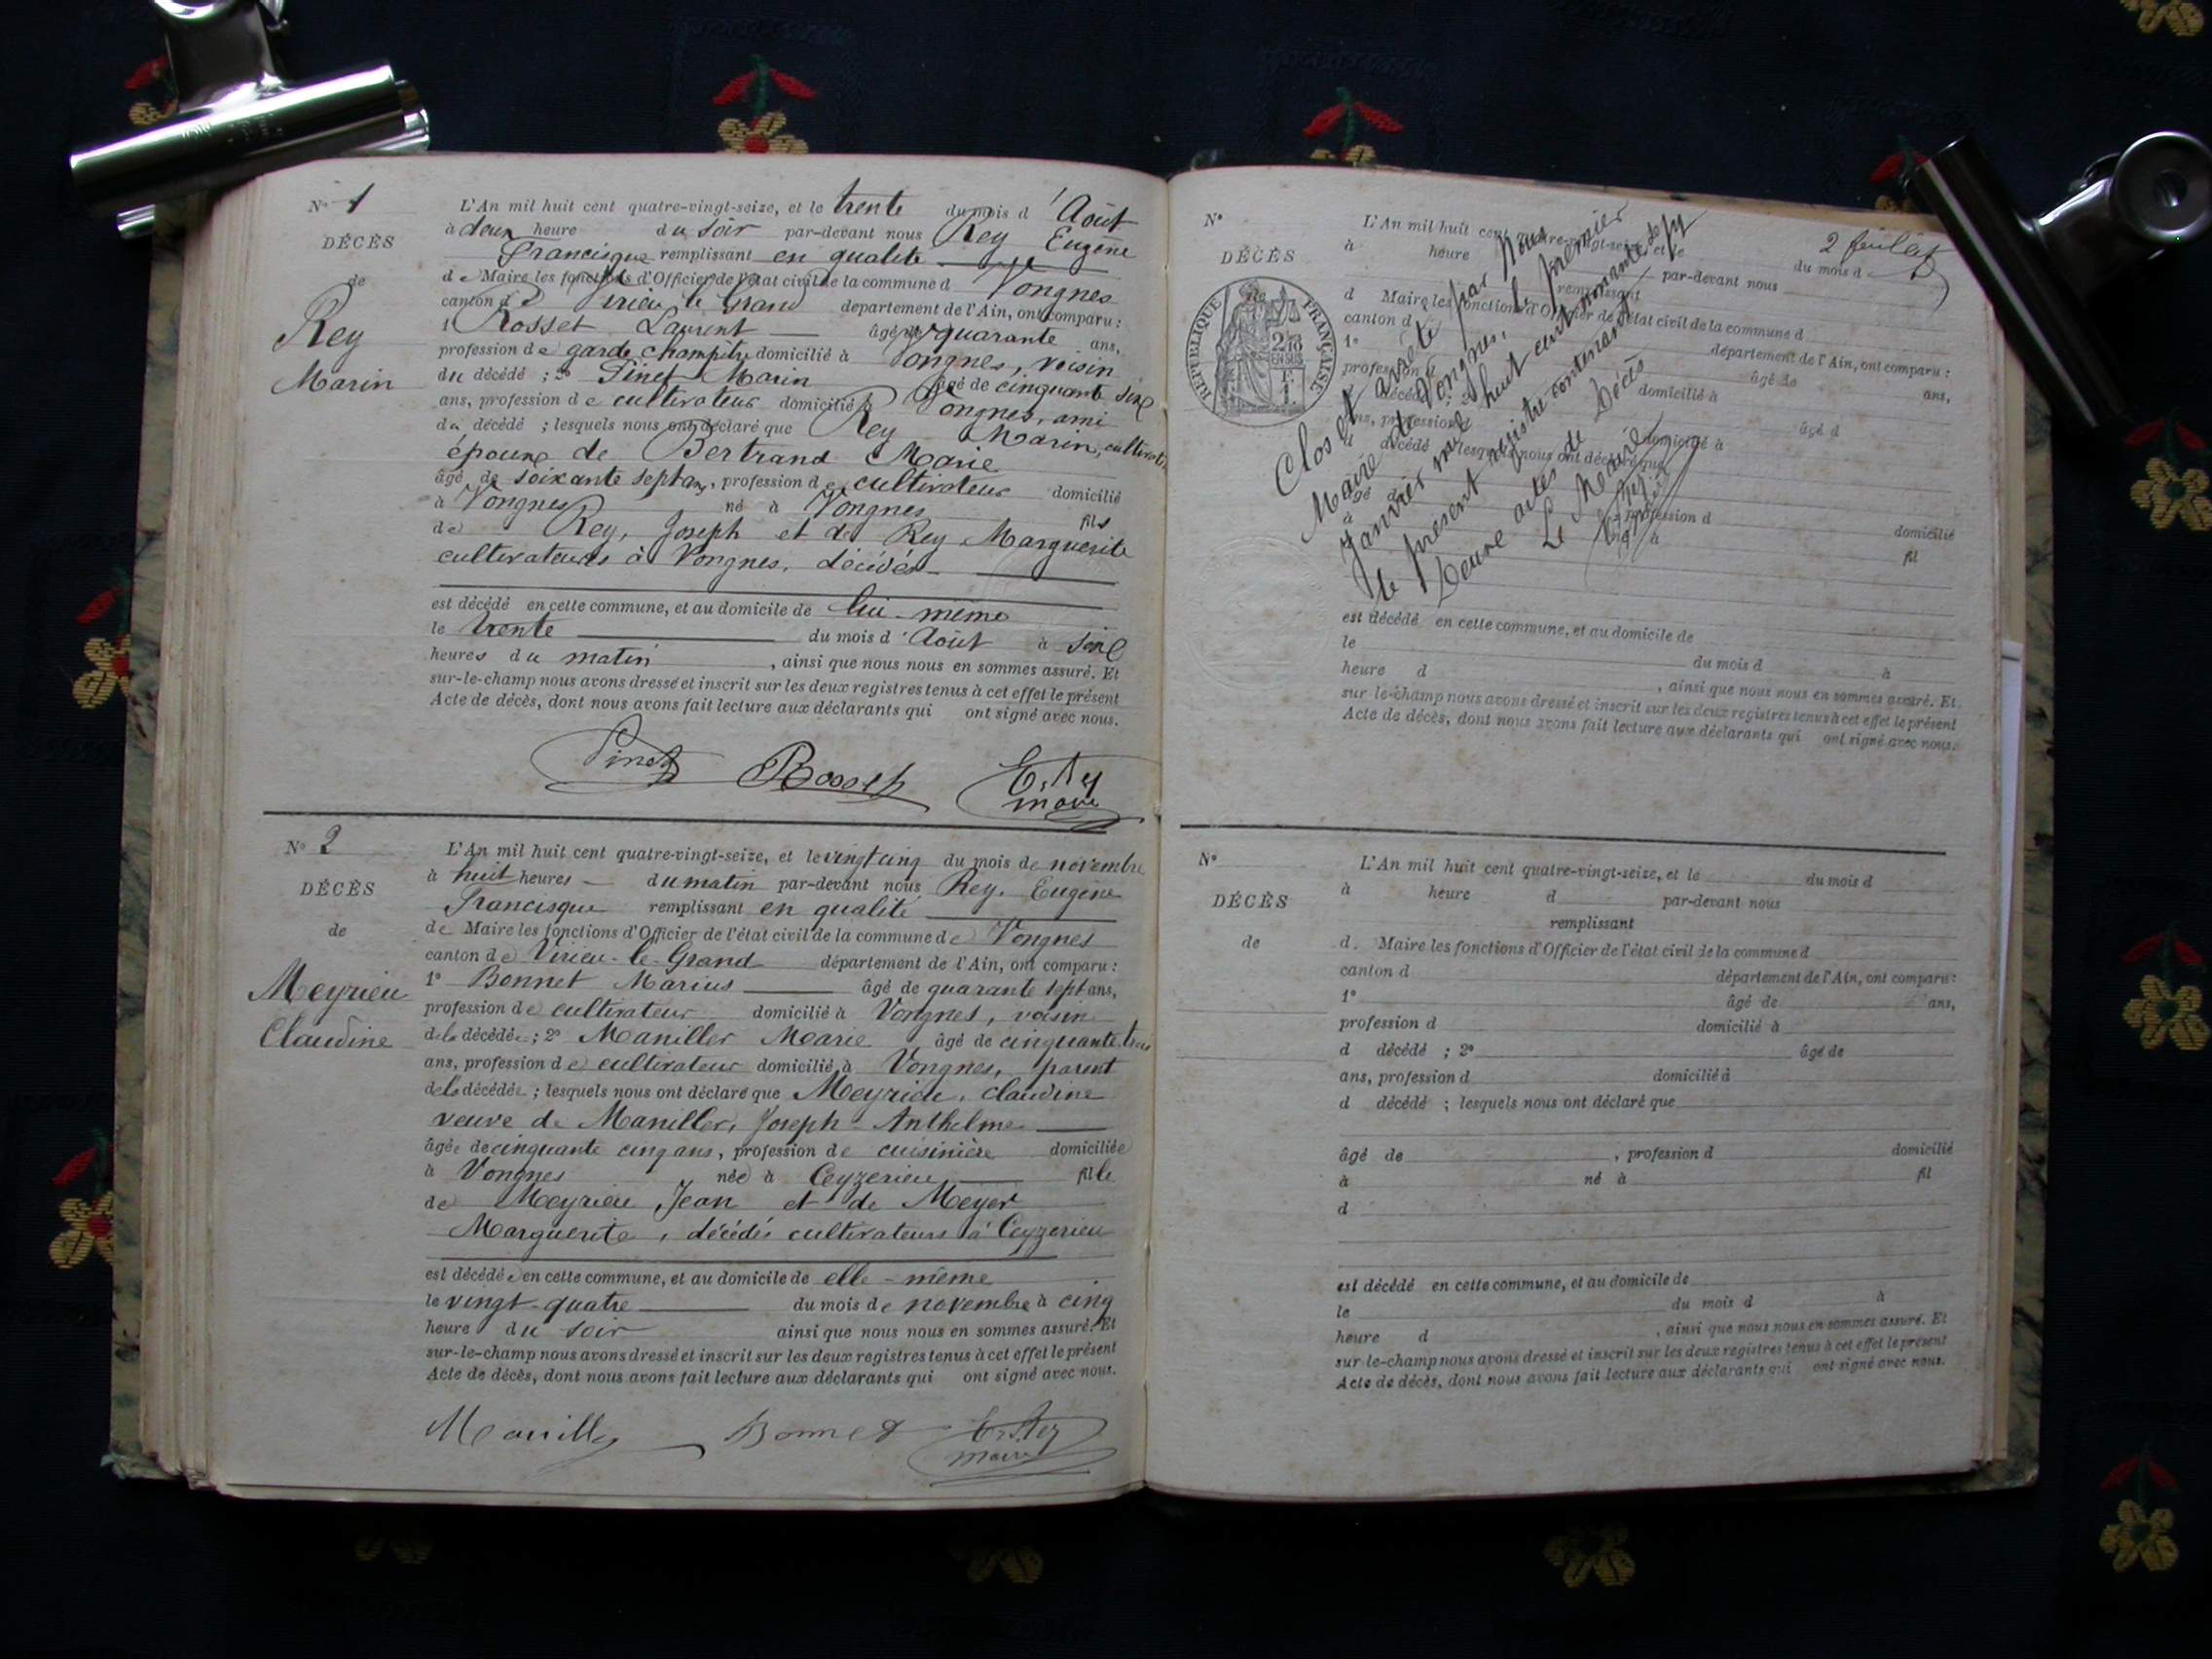 N° 1
DÉCÈS
de
Rey
Marin
L'An mil huit cent quatre-vingt-seize, et le trente du mois d'Août
à deux heure du soir par-devant nous Rey Eugène
Francisque remplissant en qualité
de Maire les fonctions d'Officier de l'état civil de la commune d Vongnes
canton de Virieu le Grand département de l'Ain, ont comparu :
1° Rosset Laurent âgé de quarante ans,
profession de garde champêtre domicilié à Vongnes, voisin
du décédé ; 2° Pinet Marin âgé de cinquante six
ans, profession de cultivateur domicilié à Vongnes, ami
du décédé ; lesquels nous ont déclaré que Rey Marin, cultivateur
époux de Bertrand Marie
âgé de soixante sept ans, profession de cultivateur domicilié
à Vongnes né à Vongnes fils
de Rey, Joseph et de Rey Marguerite
cultivateurs à Vongnes, décédés
est décédé en cette commune, et au domicile de lui-même
le trente du mois d'Août à six
heures du matin, ainsi que nous nous en sommes assuré. Et
sur-le-champ nous avons dressé et inscrit sur les deux registres tenus à cet effet le présent
Acte de décès, dont nous avons fait lecture aux déclarants qui ont signé avec nous.
Pinet Rosset E. Rey
maire
N° 2
DÉCÈS
de
Meyrieu
Claudine
L'An mil huit cent quatre-vingt-seize, et le vingt cinq du mois de novembre
à huit heures du matin par-devant nous Rey, Eugène
Francisque remplissant en qualité
de Maire les fonctions d'Officier de l'état civil de la commune de Vongnes
canton de Virieu-le-Grand département de l'Ain, ont comparu :
1° Bonnet Marius âgé de quarante sept ans,
profession de cultivateur domicilié à Vongnes, voisin
de la décédée ; 2° Maniller Marie âgé de cinquante trois
ans, profession de cultivateur domicilié à Vongnes, parent
de la décédée ; lesquels nous ont déclaré que Meyrieu, Claudine
veuve de Maniller, Joseph Anthelme
âgée de cinquante cinq ans, profession de cuisinière domiciliée
à Vongnes née à Ceyzerieu fille
de Meyrieu Jean et de Meyer
Marguerite, décédés cultivateurs à Ceyzerieu
est décédée en cette commune, et au domicile de elle-même
le vingt-quatre du mois de novembre à cinq
heure du soir ainsi que nous nous en sommes assuré. Et
sur-le-champ nous avons dressé et inscrit sur les deux registres tenus à cet effet le présent
Acte de décès, dont nous avons fait lecture aux déclarants qui ont signé avec nous.
Maniller Bonnet E. Rey
maire
2 feuillet
N°
DÉCÈS
de
RÉPUBLIQUE FRANÇAISE
2/10
EN SUS
L'An mil huit cent quatre-vingt-seize, et le du mois d
à heure d par-devant nous
remplissant
d Maire les fonctions d'Officier de l'état civil de la commune d
canton d département de l'Ain, ont comparu :
1° âgé de ans,
profession d domicilié à
d décédé ; 2° âgé d
ans, profession d domicilié à
d décédé ; lesquels nous ont déclaré que
âgé de , profession d domicilié
à né à fil
d
Clos et arrêté par Nous
Maire de Vongnes, le premier
Janvier mil huit cent nonante sept
le présent registre contenant
Deux actes de Décès
Le Maire
E. Rey
est décédé en cette commune, et au domicile de
le du mois d à
heure d , ainsi que nous nous en sommes assuré. Et
sur-le-champ nous avons dressé et inscrit sur les deux registres tenus à cet effet le présent
Acte de décès, dont nous avons fait lecture aux déclarants qui ont signé avec nous.
N°
DÉCÈS
de
L'An mil huit cent quatre-vingt-seize, et le du mois d
à heure d par-devant nous
remplissant
d Maire les fonctions d'Officier de l'état civil de la commune d
canton d département de l'Ain, ont comparu :
1° âgé de ans,
profession d domicilié à
d décédé ; 2° âgé de
ans, profession d domicilié à
d décédé ; lesquels nous ont déclaré que
âgé de , profession d domicilié
à né à fil
d
est décédé en cette commune, et au domicile de
le du mois d à
heure d , ainsi que nous nous en sommes assuré. Et
sur-le-champ nous avons dressé et inscrit sur les deux registres tenus à cet effet le présent
Acte de décès, dont nous avons fait lecture aux déclarants qui ont signé avec nous.